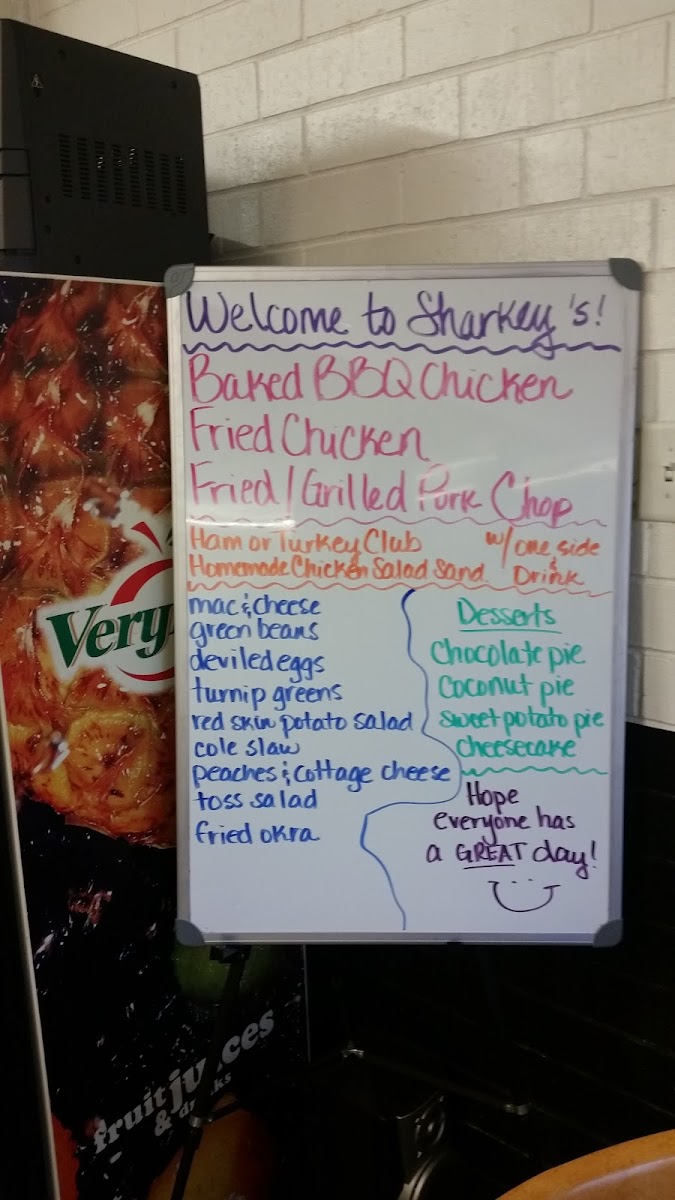 Welcome to Sharkey's!
Baked BBQ Chicken
Fried Chicken
Fried/Grilled Pork Chop
Ham or Turkey Club
Homemade Chicken Salad Sand.
w/ one side
&
Drink
mac & cheese
green beans
deviled eggs
turnip greens
red skin potato salad
cole slaw
peaches & cottage cheese
toss salad
fried okra
Desserts
Chocolate pie
Coconut pie
Sweet potato pie
Cheesecake
Hope
everyone has
a GREAT day!
Very
fruit juices
& drinks